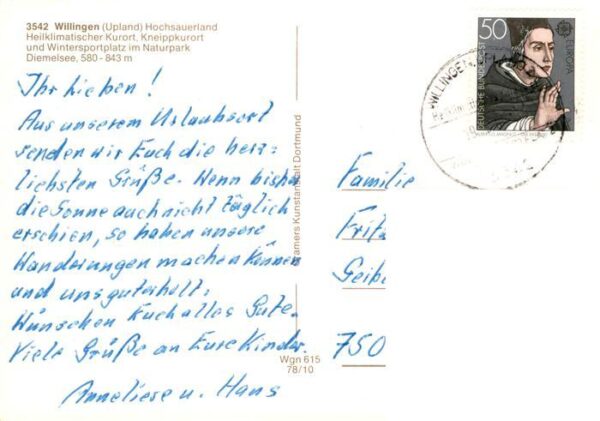 3542 Willingen (Upland) Hochsauerland
Heilklimatischer Kurort, Kneippkurort
und Wintersportplatz im Naturpark
Diemelsee, 580 - 843 m
Ihr Lieben!
Aus unserem Urlaubsort
senden wir Euch die herz=
lichsten Grüße. Wenn bisher
die Sonne auch nicht täglich
erschien, so haben unsere
Wanderungen machen können
und uns gut erholt.
Wünschen Euch alles Gute.
Viele Grüße an Eure Kinder.
Anneliese u. Hans
Cramers Kunstanstalt Dortmund
Wgn 615
78/10
50
DEUTSCHE BUNDESPOST
EUROPA
WILLINGEN
3542
Familie
Fritz
Geibe
750